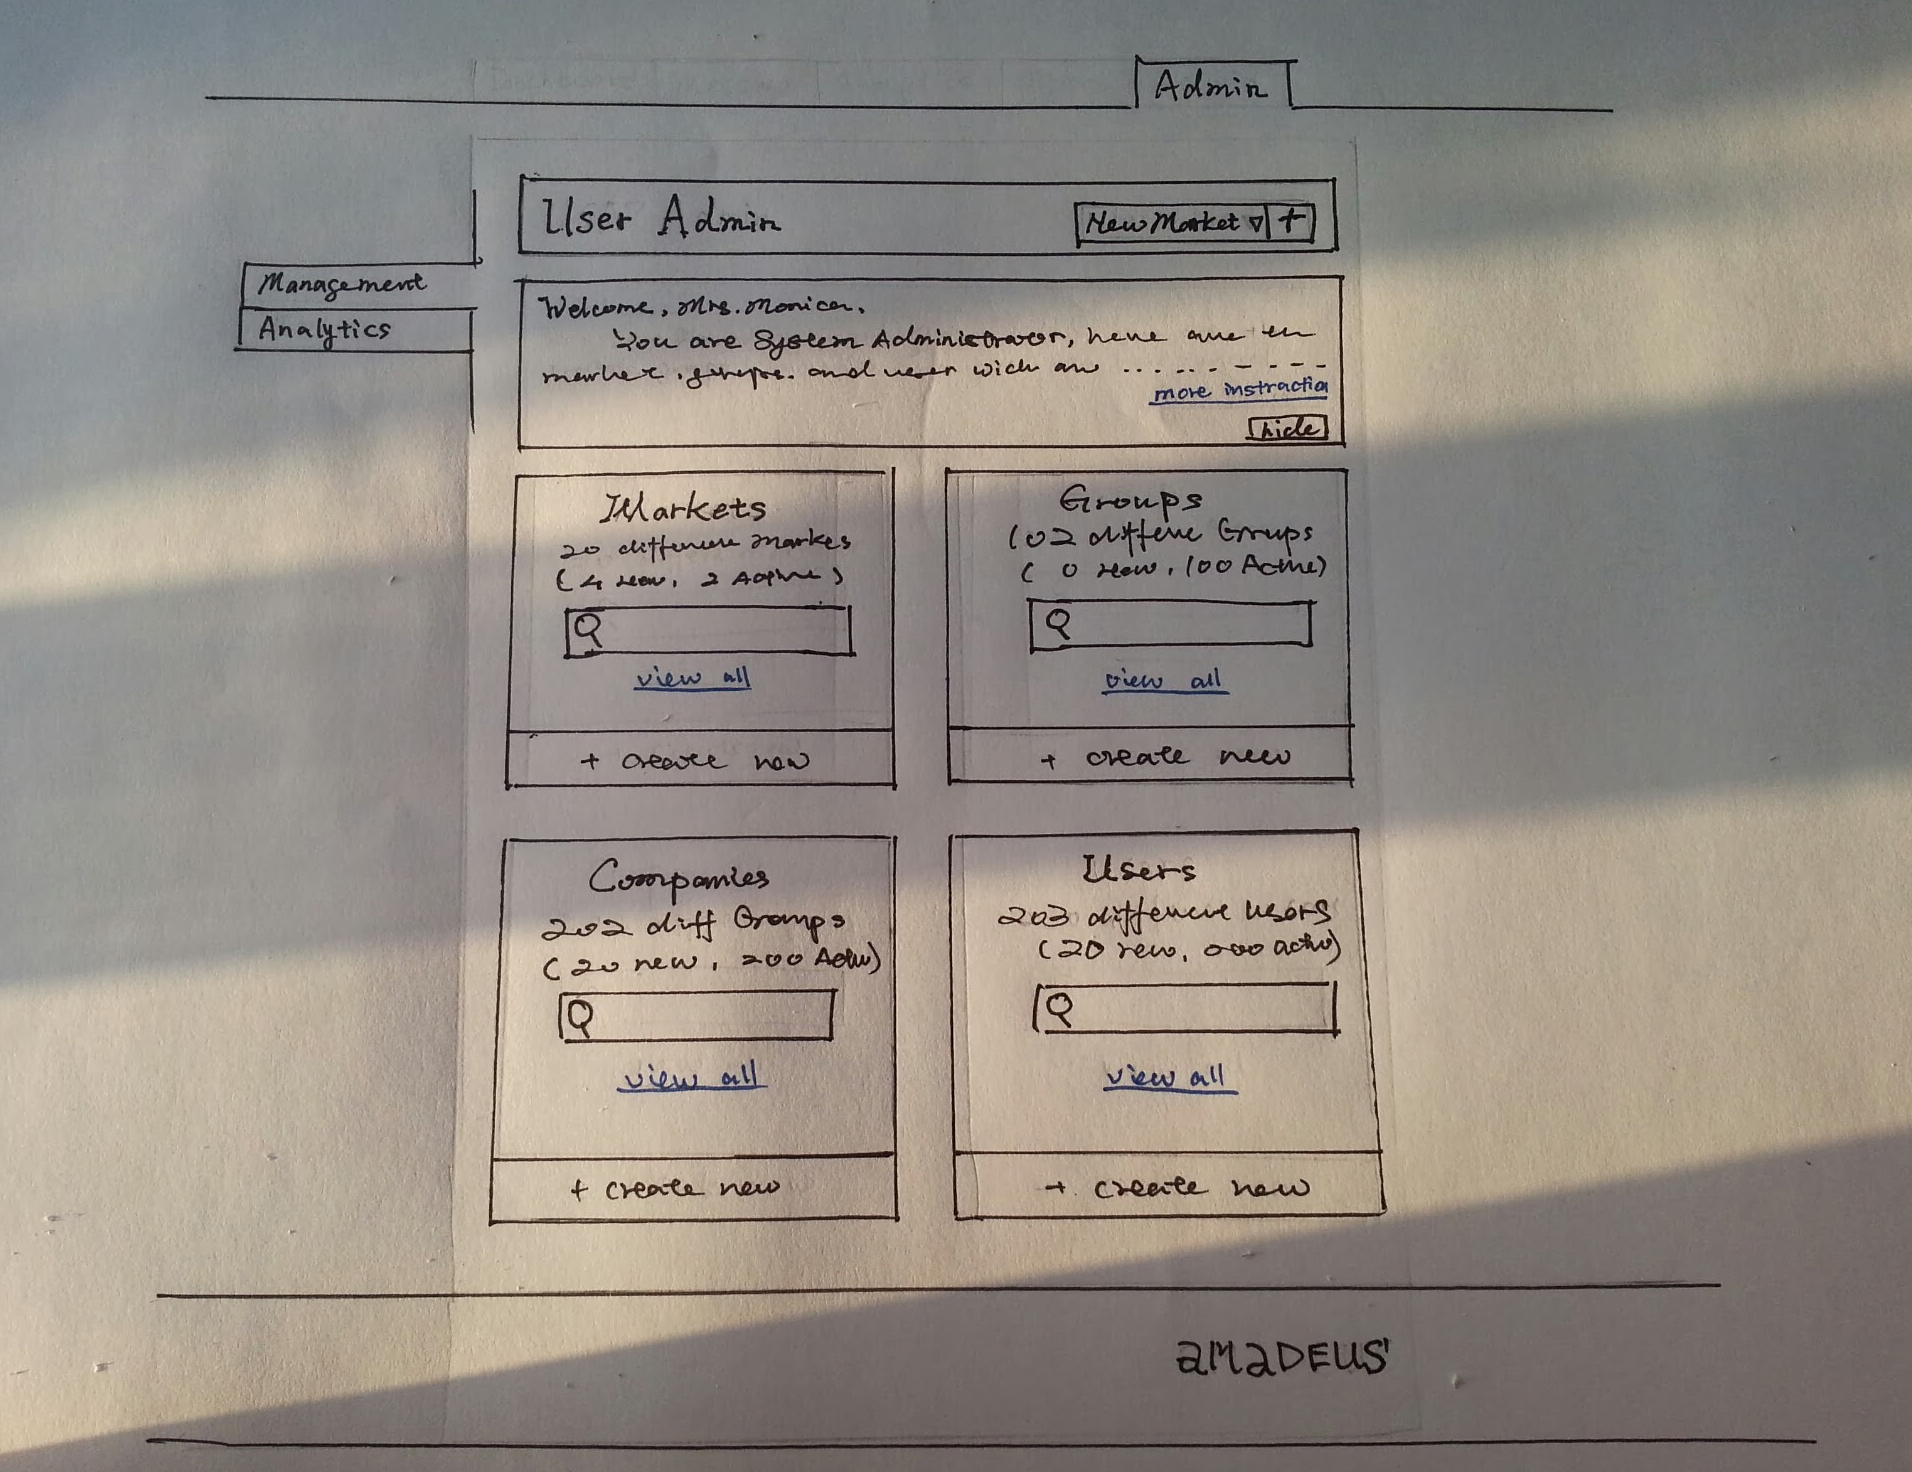 Admin
User Admin
New Market +
Management
Analytics
Welcome, Mrs. Monica,
You are System Administrator,
and user with
more instractio
hide
Markets
20 different markes
(4 new, 2 Active)
view all
+ create new
Groups
102 differe Groups
(0 new, 100 Active)
view all
+ create new
Companies
202 diff Groups
(20 new, 200 Activ)
view all
+ create new
Users
203 different users
(20 new, 000 activ)
view all
+ create new
amaDEUS